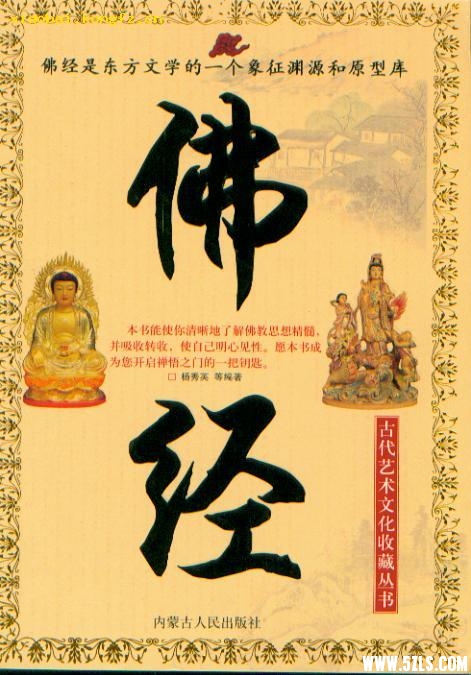 佛经是东方文学的一个象征渊源和原型库
佛
本书能使你清晰地了解佛教思想精髓，
并吸收转收，使自己明心见性。愿本书成
为您开启禅悟之门的一把钥匙。
□ 杨秀英 等编著
经
古代艺术文化收藏丛书
内蒙古人民出版社
WWW.5ZLS.COM